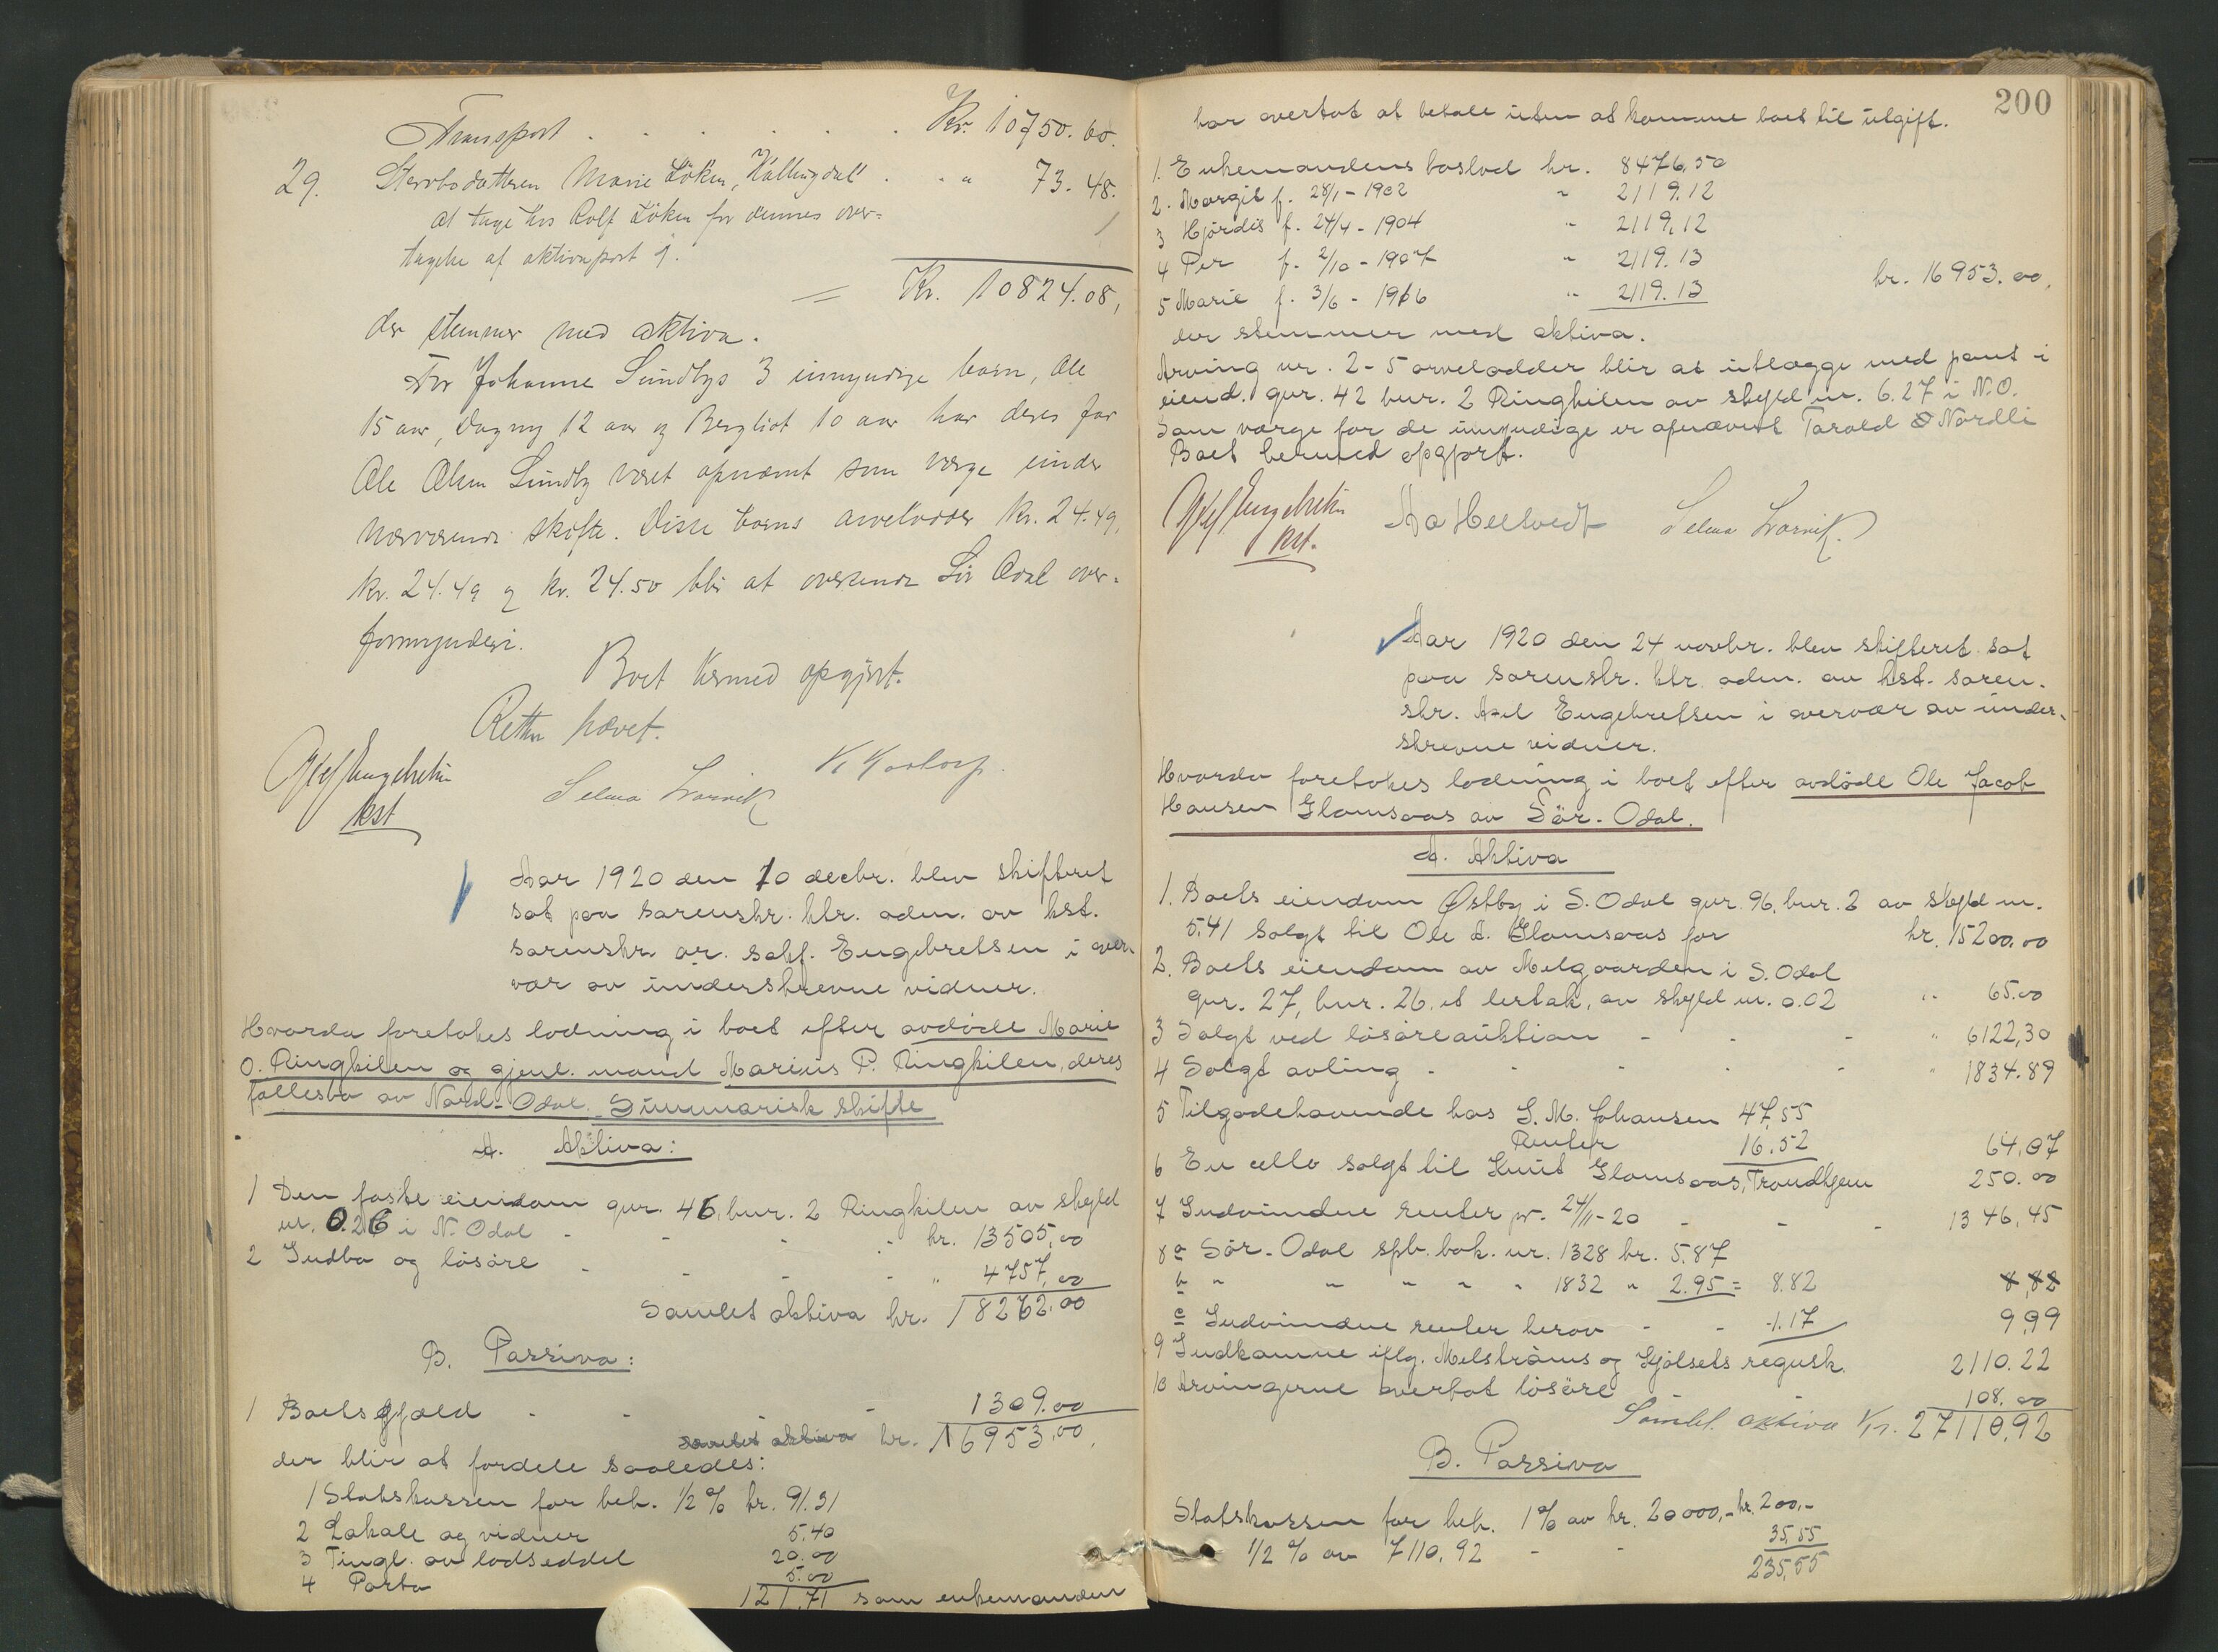 Transport . . . . . . Kr. 10750.60.
29. Stervbodatteren Marie Löken, "Hallingdal" . . " 73.48.
at tage hos Rolf Löken for dennes over-
tagelse af aktivapost 9.
= Kr. 10824.08,
der stemmer med aktiva.
For Johanne Sundbys 3 umyndige barn, Ole
15 aar, Dagny 12 aar og Bergliot 10 aar har deres far
Ole Olsen Sundby været opnævnt som værge under
nærværende skifte. Disse barns arvelodder kr. 24.49,
kr. 24.49 og kr. 24.50 blir at oversende Sör Odal over-
formynderi.
Boet hermed opgjort.
Retten hævet.
Axel Engebretsen
kst
Selma Larvik
K. Kortorp.
Aar 1920 den 10 decbr. blev skifteret
sat paa sorenskr. ktr. adm. av kst.
sorenskr. or. sakf. Engebretsen i over-
vær av underskrevne vidner.
Hvorda foretokes lodning i boet efter avdöde Marie
O. Ringkilen og gjenl. mand Marius P. Ringkilen, deres
fællesbo av Nord-Odal. Summarisk skifte
A. Aktiva:
1 Den faste eiendom gnr. 46, bnr. 2 Ringkilen av skyld
m. 0.26 i N. Odal - - - - kr. 13505,00
2 Indbo og lösöre - - - - " 4757,00
Samlet aktiva kr. 18262.00
B. Passiva:
1 Boets gjæld - - - - 1309.00
samlet aktiva kr. 16953,00,
der blir at fordele saaledes:
1 Statskassen for beh. 1/2 % kr. 91.31
2 Lokale og vidner 5.40
3 Tingl. av lodseddel 20.00
4 Porto 5.00
121,71 som enkemanden
200
har overtat at betale uten at komme boet til utgift.
1. Enkemandens boslod kr. 8476,50
2. Margit f. 28/1 - 1902 " 2119.12
3 Hjördis f. 24/4 - 1904 " 2119,12
4 Per f. 2/10 - 1907 " 2119.13
5 Marie f. 3/6 - 1916 " 2119.13 kr. 16953.00,
der stemmer med aktiva.
Arving nr. 2-5 arvelodder blir at utlægge med pant i
eiend. gnr. 42 bnr. 2 Ringkilen av skyld m. 6.27 i N.O.
Som værge for de umyndige er opnævnt Tarald Nordli
Boet hermed opgjort.
Axel Engebretsen
kst.
Aa Hellvedt
Selma Larvik.
Aar 1920 den 24 novbr. blev skifteret sat
paa sorenskr. ktr. adm. av kst. soren-
skr. Axel Engebretsen i overvær av under-
skrevne vidner.
Hvorda foretokes lodning i boet efter avdöde Ole Jacob
Hansen Glomsaas av Sör-Odal.
A. Aktiva
1. Boets eiendom Østby i S. Odal gnr. 96, bnr. 2 av skyld m.
5.41 solgt til Ole A. Glomsaas for kr. 15200.00
2. Boets eiendom av Melgaarden i S. Odal
gnr. 27, bnr. 26, et lertak, av skyld m. 0.02 " 65.00
3 Solgt ved lösöreauktion - - " 6122,30
4 Solgt avling - - - - - " 1834.89
5 Tilgodehavende hos S. M. Johansen 47,55
Renter 16.52 64,07
6 En cello solgt til Knut Glomsaas, Trondhjem 250.00
7 Indvundne renter pr. 24/11-20 - - - 1346,45
8 a Sör-Odal spb. bok. nr. 1328 kr. 5.87
b " " " " " 1832 " 2.95 = 8.82 8,82
c Indvundne renter herav - - 1.17 9,99
9 Indkomne iflg. Melströms og Kjölsets regnsk. 2110.22
10 Arvingerne overtat lösöre - - 108.00
Samlet aktiva Kr. 27110,92
B. Passiva
Statskassen for beh. 1 % av kr. 20000,- kr. 200,-
1/2 % av 7110,92 - - 35,55
235,55